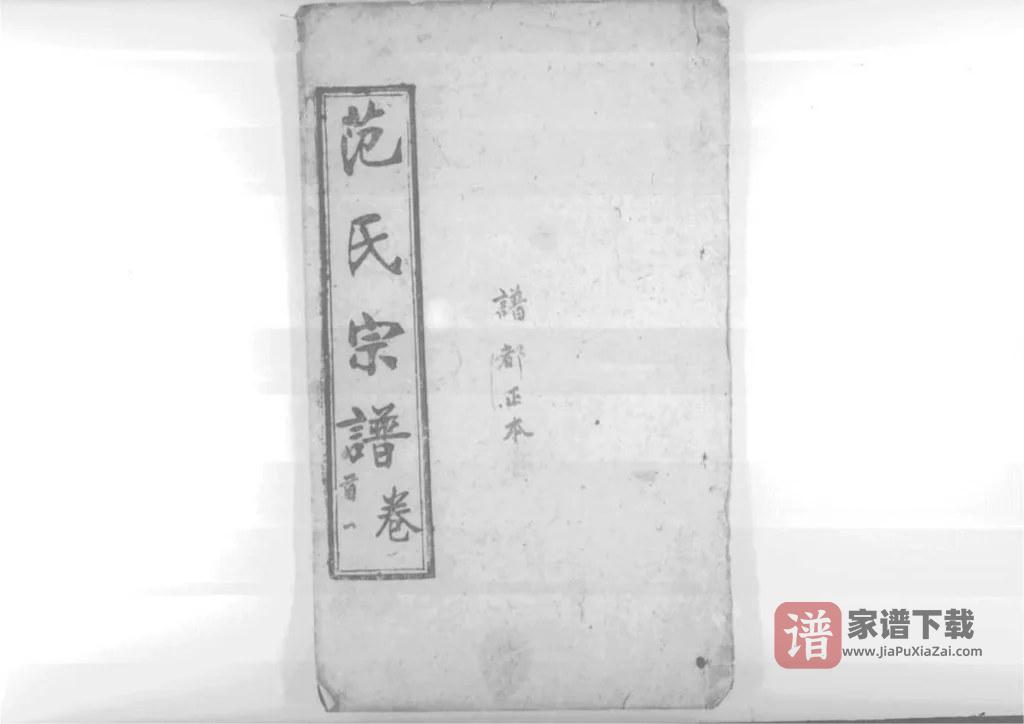 范氏宗譜卷
首一
譜都正本
谱 家谱下载
www.JiaPuXiaZai.com